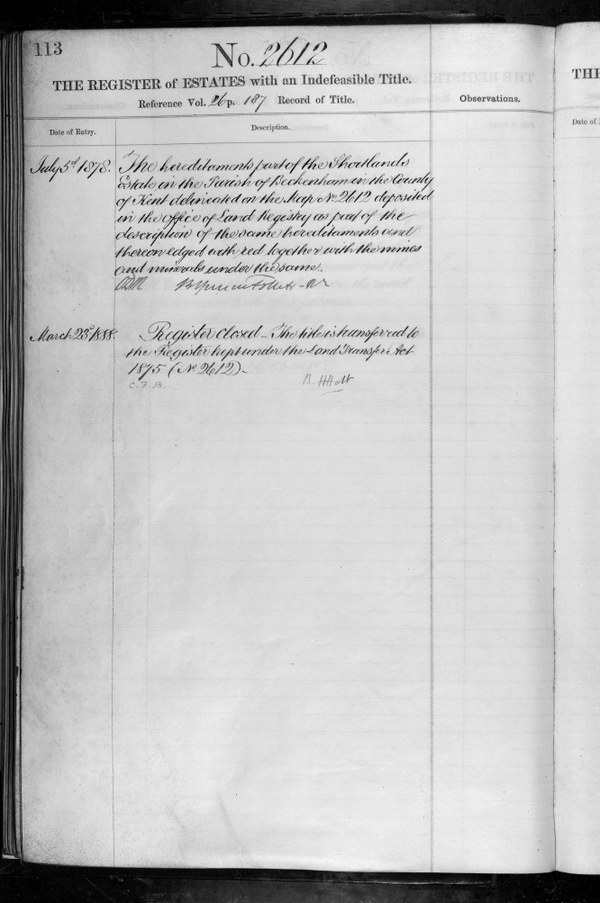 113
No. 2612
THE REGISTER of ESTATES with an Indefeasible Title.
Reference Vol. 26 p. 187 Record of Title.
Observations.
Date of Entry.
Description.
July 5th 1878.
The hereditaments part of the Shortlands
Estate in the Parish of Beckenham in the County
of Kent delineated on the Map No. 2612 deposited
in the Office of Land Registry as part of the
description of the same hereditaments and
thereon edged with red together with the mines
and minerals under the same.
March 23d 1888.
Register closed - The title is transferred to
the Register kept under the Land Transfer Act
1875 (No. 2612).-
C. F. B.
R. H Holt
THE
Date of